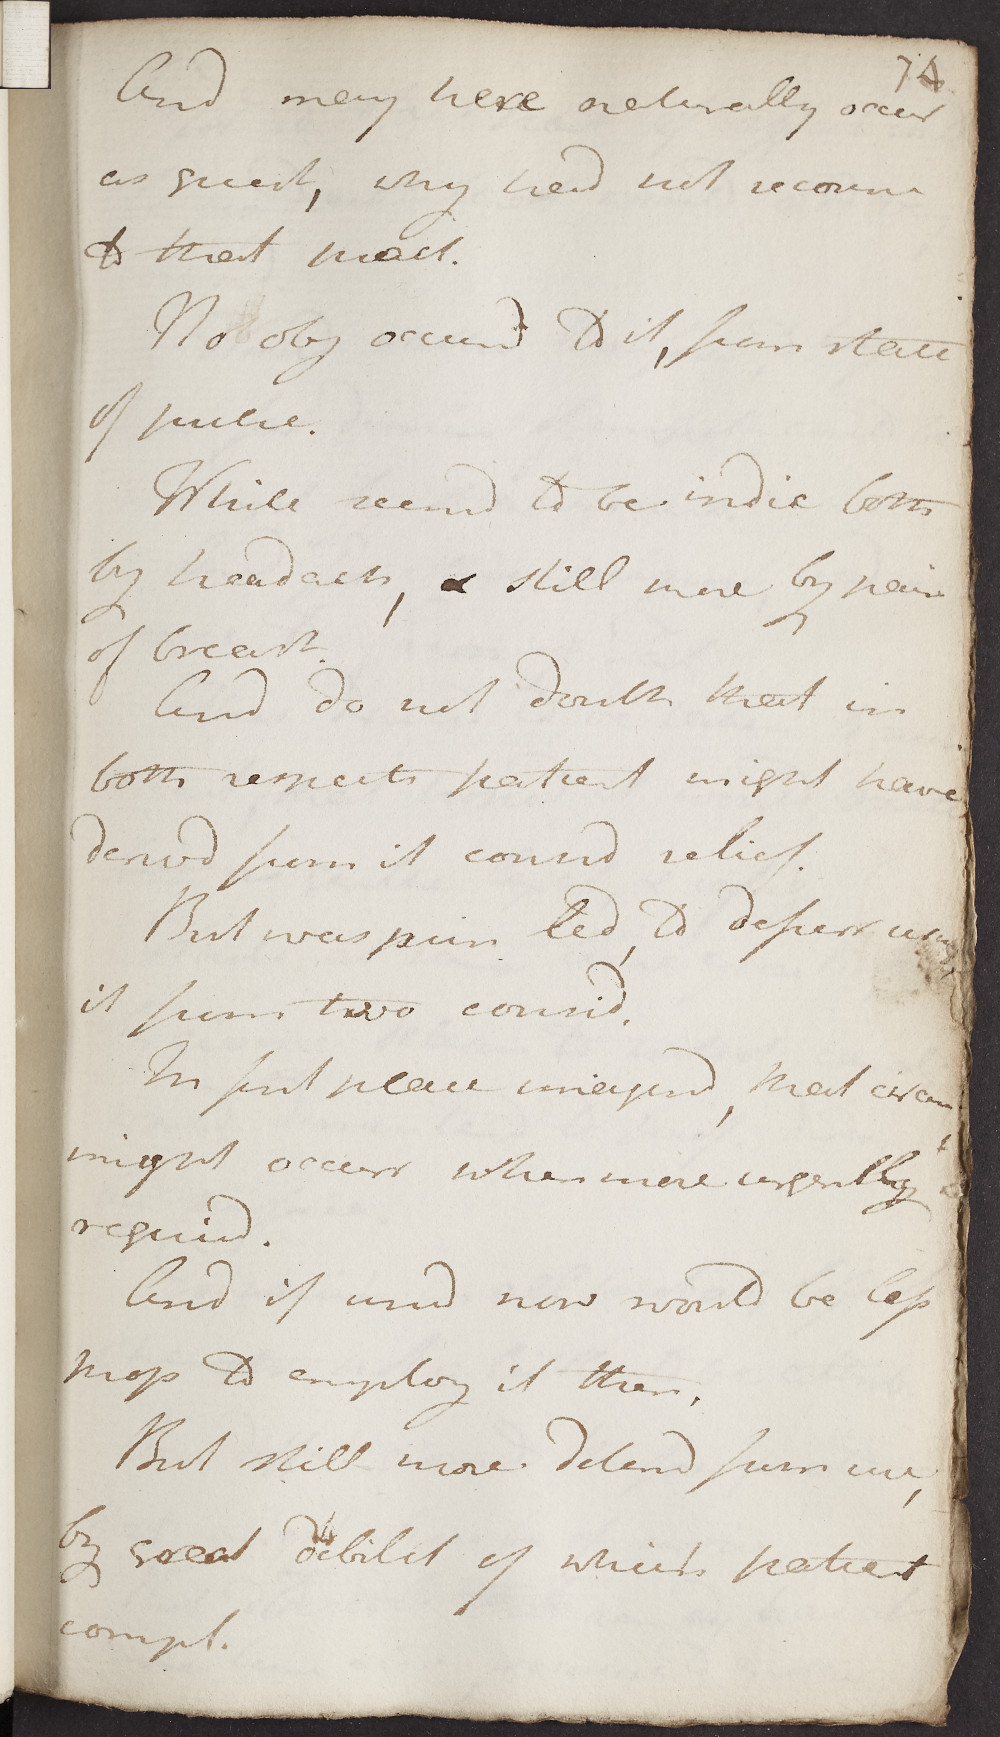 74
And may here naturally occur
as quest, why had not recourse
to that pract.
No obj occurd to it, from state
of pulse.
While seemd to be indic both
by headach, & still more by pain
of breast.
And do not doubt that in
both respects patient might have
derivd from it consid relief.
But was prin led, to deferr using
it from two consid.
In first place imagind, that circum
might occurr when more urgently
requird.
And if usd now would be less
prop to employ it then.
But still more deterd from use,
by great debilit of which patient
compl.